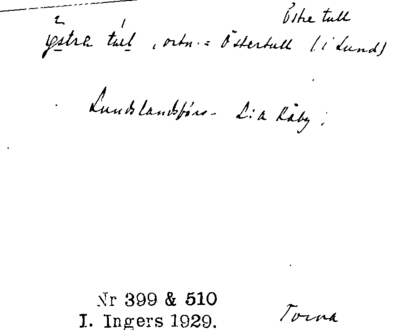 Östre tull
ystra tul , ortn. = Östertull (i Lund)
Lundslandsförs. L:a Råby ;
Nr 399 & 510
I. Ingers 1929. Torna